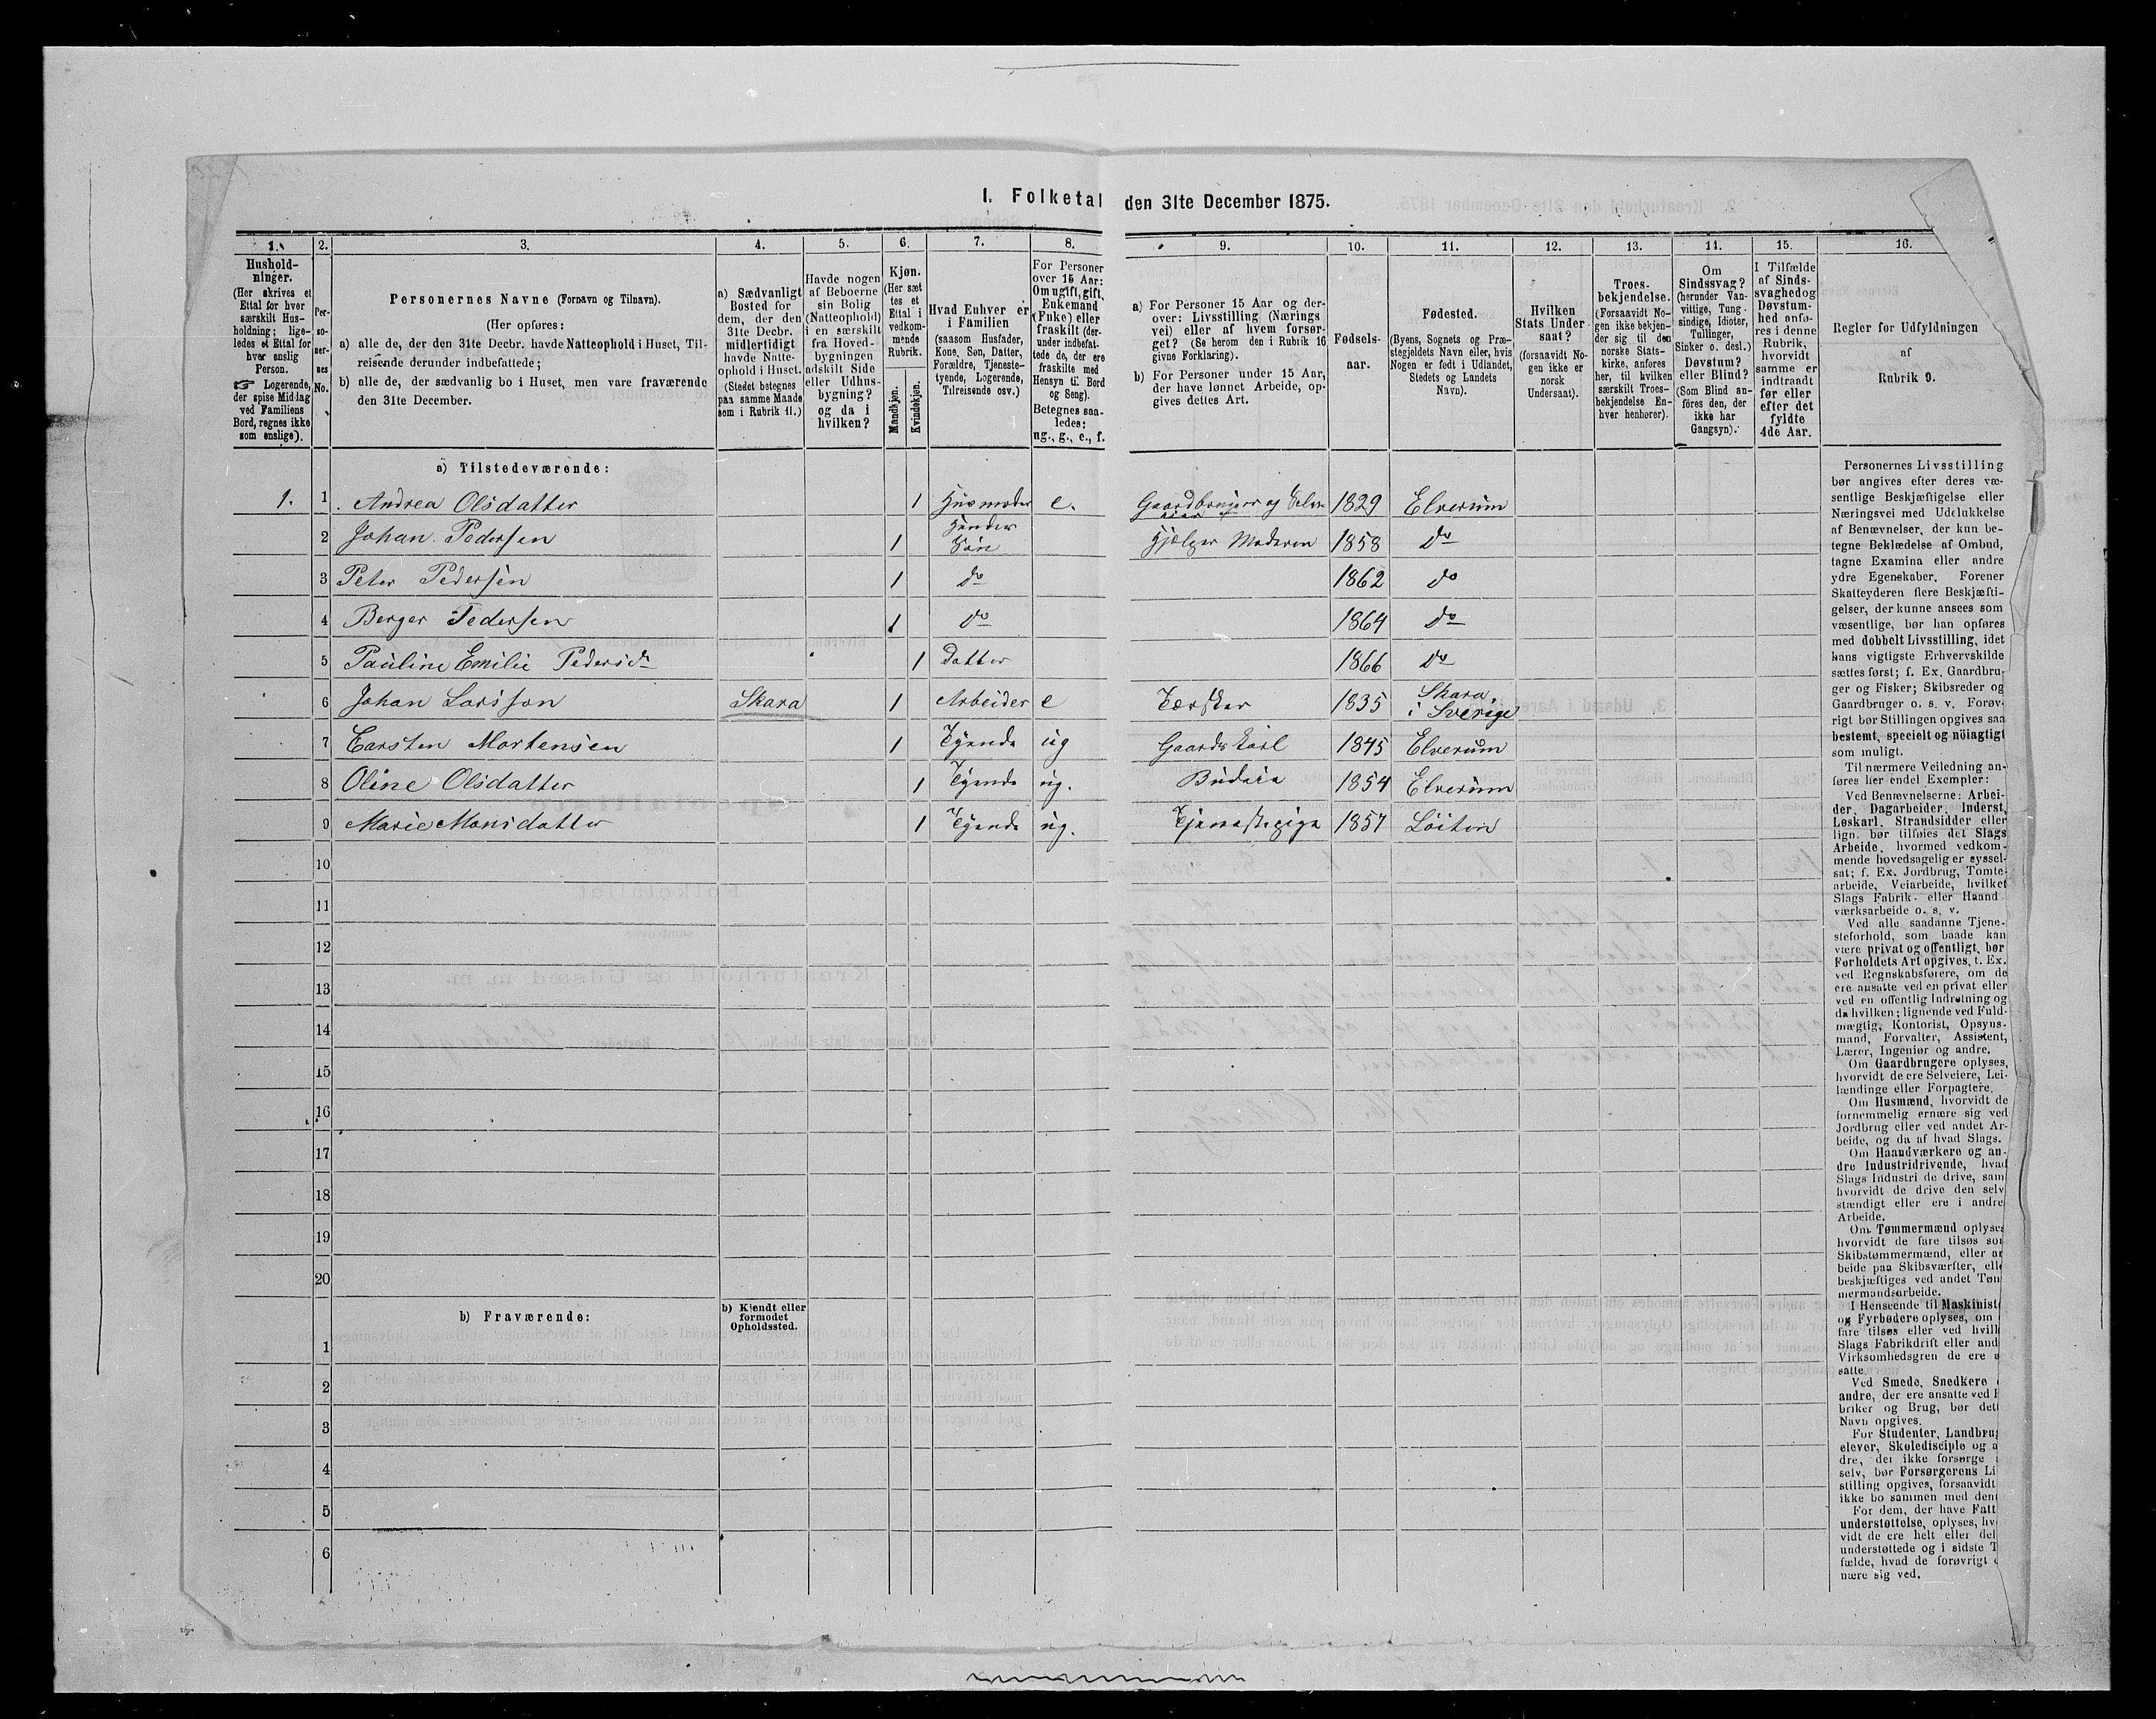 I. Folketal den 31te December 1875.
1. 2. 3. 4. 5. 6. 7. 8. 9. 10. 11. 12. 13. 14. 15. 16.
Hushold-
ninger.
(Her skrives et
Ettal for hver
særskilt Hus-
holdning; lige-
ledes et Ettal for
hver enslig
Person.
☞ Logerende,
der spise Middag
ved Familiens
Bord, regnes ikke
som enslige).
Per-
so-
ner-
nes
No.
Personernes Navne (Fornavn og Tilnavn).
(Her opføres:
a) alle de, der den 31te Decbr. havde Natteophold i Huset, Til-
reisende derunder indbefattede;
b) alle de, der sædvanlig bo i Huset, men vare fraværende
den 31te December.
a) Sædvanligt
Bosted for
dem, der den
31te Decbr.
midlertidigt
havde Natte-
ophold i Huset.
(Stedet betegnes
paa samme Maade
som i Rubrik 11.)
Havde nogen
af Beboerne
sin Bolig
(Natteophold)
i en særskilt
fra Hoved-
bygningen
adskilt Side
eller Udhus-
bygning?
og da i
hvilken?
Kjøn.
(Her sæt
tes et
Ettal i
vedkom-
mende
Rubrik.
Mandkjøn.
Kvindekjøn.
Hvad Enhver er
i Familien
(saasom Husfader,
Kone, Søn, Datter,
Forældre, Tjeneste-
tyende, Logerende,
Tilreisende osv.)
For Personer
over 15 Aar:
Om ugift, gift,
Enkemand
(Enke) eller
fraskilt (der-
under indbefat-
tede de, der ere
fraskilte med
Hensyn til Bord
og Seng).
Betegnes saa-
ledes:
ug., g., e., f.
a) For Personer 15 Aar og der-
over: Livsstilling (Nærings
vei) eller af hvem forsør-
get? (Se herom den i Rubrik 16
givne Forklaring).
b) For Personer under 15 Aar,
der have lønnet Arbeide, op-
gives dettes Art.
Fødsels-
aar.
Fødested.
(Byens, Sognets og Præ-
stegjeldets Navn eller, hvis
Nogen er født i Udlandet,
Stedets og Landets
Navn).
Hvilken
Stats Under
saat?
(forsaavidt No-
gen ikke er
norsk
Undersaat).
Troes-
bekjendelse.
(Forsaavidt No-
gen ikke bekjen-
der sig til den
norske Stats-
kirke, anføres
her, til hvilken
særskilt Troes-
bekjendelse En-
hver henhører).
Om
Sindssvag?
(herunder Van-
vittige, Tung-
sindige, Idioter,
Tullinger,
Sinker o. desl.)
Døvstum?
eller Blind?
(Som Blind an-
føres den, der
ikke har
Gangsyn).
I Tilfælde
af Sinds-
svaghed og
Døvstum-
hed anfø-
res i denne
Rubrik,
hvorvidt
samme er
indtraadt
før eller
efter det
fyldte
4de Aar.
Regler for Udfyldningen
af
Rubrik 9.
a) Tilstedeværende:
1. 1 Andrea Olsdatter 1 Husmoder e. Gaardbruger og Selv- 1829 Elverum
2 Johan Pedersen 1 Søn Hjælper Moderen 1858 Do
3 Peter Pedersen 1 do 1862 do
4 Berger Pedersen 1 do 1864 do
5 Pauline Emilie Pedersdr 1 Datter 1866 do
6 Johan Larsson Skara 1 Arbeider e Tærsker 1835 Skara
i Sverige
7 Carsten Mortensen 1 Tyende ug Gaardskarl 1845 Elverum
8 Oline Olsdatter 1 Tyende ug. Budeie 1854 Elverum
9 Marie Monsdatter 1 Tyende ug. Tjenestepige 1857 Löiten
10
11
12
13
14
15
16
17
18
19
20
b) Fraværende:
b) Kjendt eller
formodet
Opholdssted.
1
2
3
4
5
6
Personernes Livsstilling
bør angives efter deres væ-
sentlige Beskjæftigelse eller
Næringsvei med Udelukkelse
af Benævnelser, der kun be-
tegne Beklædelse af Ombud,
tagne Examina eller andre
ydre Egenskaber. Forener
Skatteyderen flere Beskjæfti-
gelser, der kunne ansees som
væsentlige, bør han opføres
med dobbelt Livsstilling, idet
hans vigtigste Erhvervskilde
sættes først; f. Ex. Gaardbru-
ger og Fisker; Skibsreder og
Gaardbruger o. s. v. Forøv-
rigt bør Stillingen opgives saa
bestemt, specielt og nöiagtigt
som muligt.
Til nærmere Veiledning an-
føres her endel Exempler:
Ved Benævnelserne: Arbei-
der, Dagarbeider, Inderst,
Løskarl, Strandsidder eller
lign. bør tilføies det Slags
Arbeide, hvormed vedkom-
mende hovedsagelig er syssel-
sat; f. Ex. Jordbrug, Tomte-
arbeide, Veiarbeide, hvilket
Slags Fabrik- eller Haand
værksarbeide o. s. v.
Ved alle saadanne Tjene-
steforhold, som baade kan
være privat og offentligt, bør
Forholdets Art opgives, t. Ex.
ved Regnskabsførere, om de
ere ansatte ved en privat eller
ved en offentlig Indretning og
da hvilken; lignende ved Fuld-
mægtig, Kontorist, Opsyns-
mand, Forvalter, Assistent,
Lærer, Ingeniør og andre.
Om Gaardbrugere oplyses,
hvorvidt de ere Selveiere, Lei-
lændinge eller Forpagtere.
Om Husmænd, hvorvidt de
fornemmelig ernære sig ved
Jordbrug eller ved andet Ar-
beide, og da af hvad Slags.
Om Haandværkere og an-
dre Industridrivende, hvad
Slags Industri de drive, sam
hvorvidt de drive den selv
stændigt eller ere i andre
Arbeide.
Om Tømmermænd oplyses
hvorvidt de fare tilsøs som
Skibstømmermænd, eller ar
beide paa Skibsværfter, elle
beskjæftiges ved andet Tøm
mermandsarbeide.
I Henseende til Maskinist
og Fyrbødere oplyses, om
fare tilsøs eller ved hvilk
Slags Fabrikdrift eller and
Virksomhedsgren de ere a
satte.
Ved Smede, Snedkere
andre, der ere ansatte ved F
briker og Brug, bør det
Navn opgives.
For Studenter, Landbrug
elever, Skoledisciple og a
dre, der ikke forsørge
selv, bør Forsørgerens Li
stilling opgives, forsaavidt
ikke bo sammen med den
For dem, der have Fatt
understøttelse, oplyses, hv
vidt de ere helt eller del
understøttede og i sidste T
fælde, hvad de forøvrigt
nære sig ved.